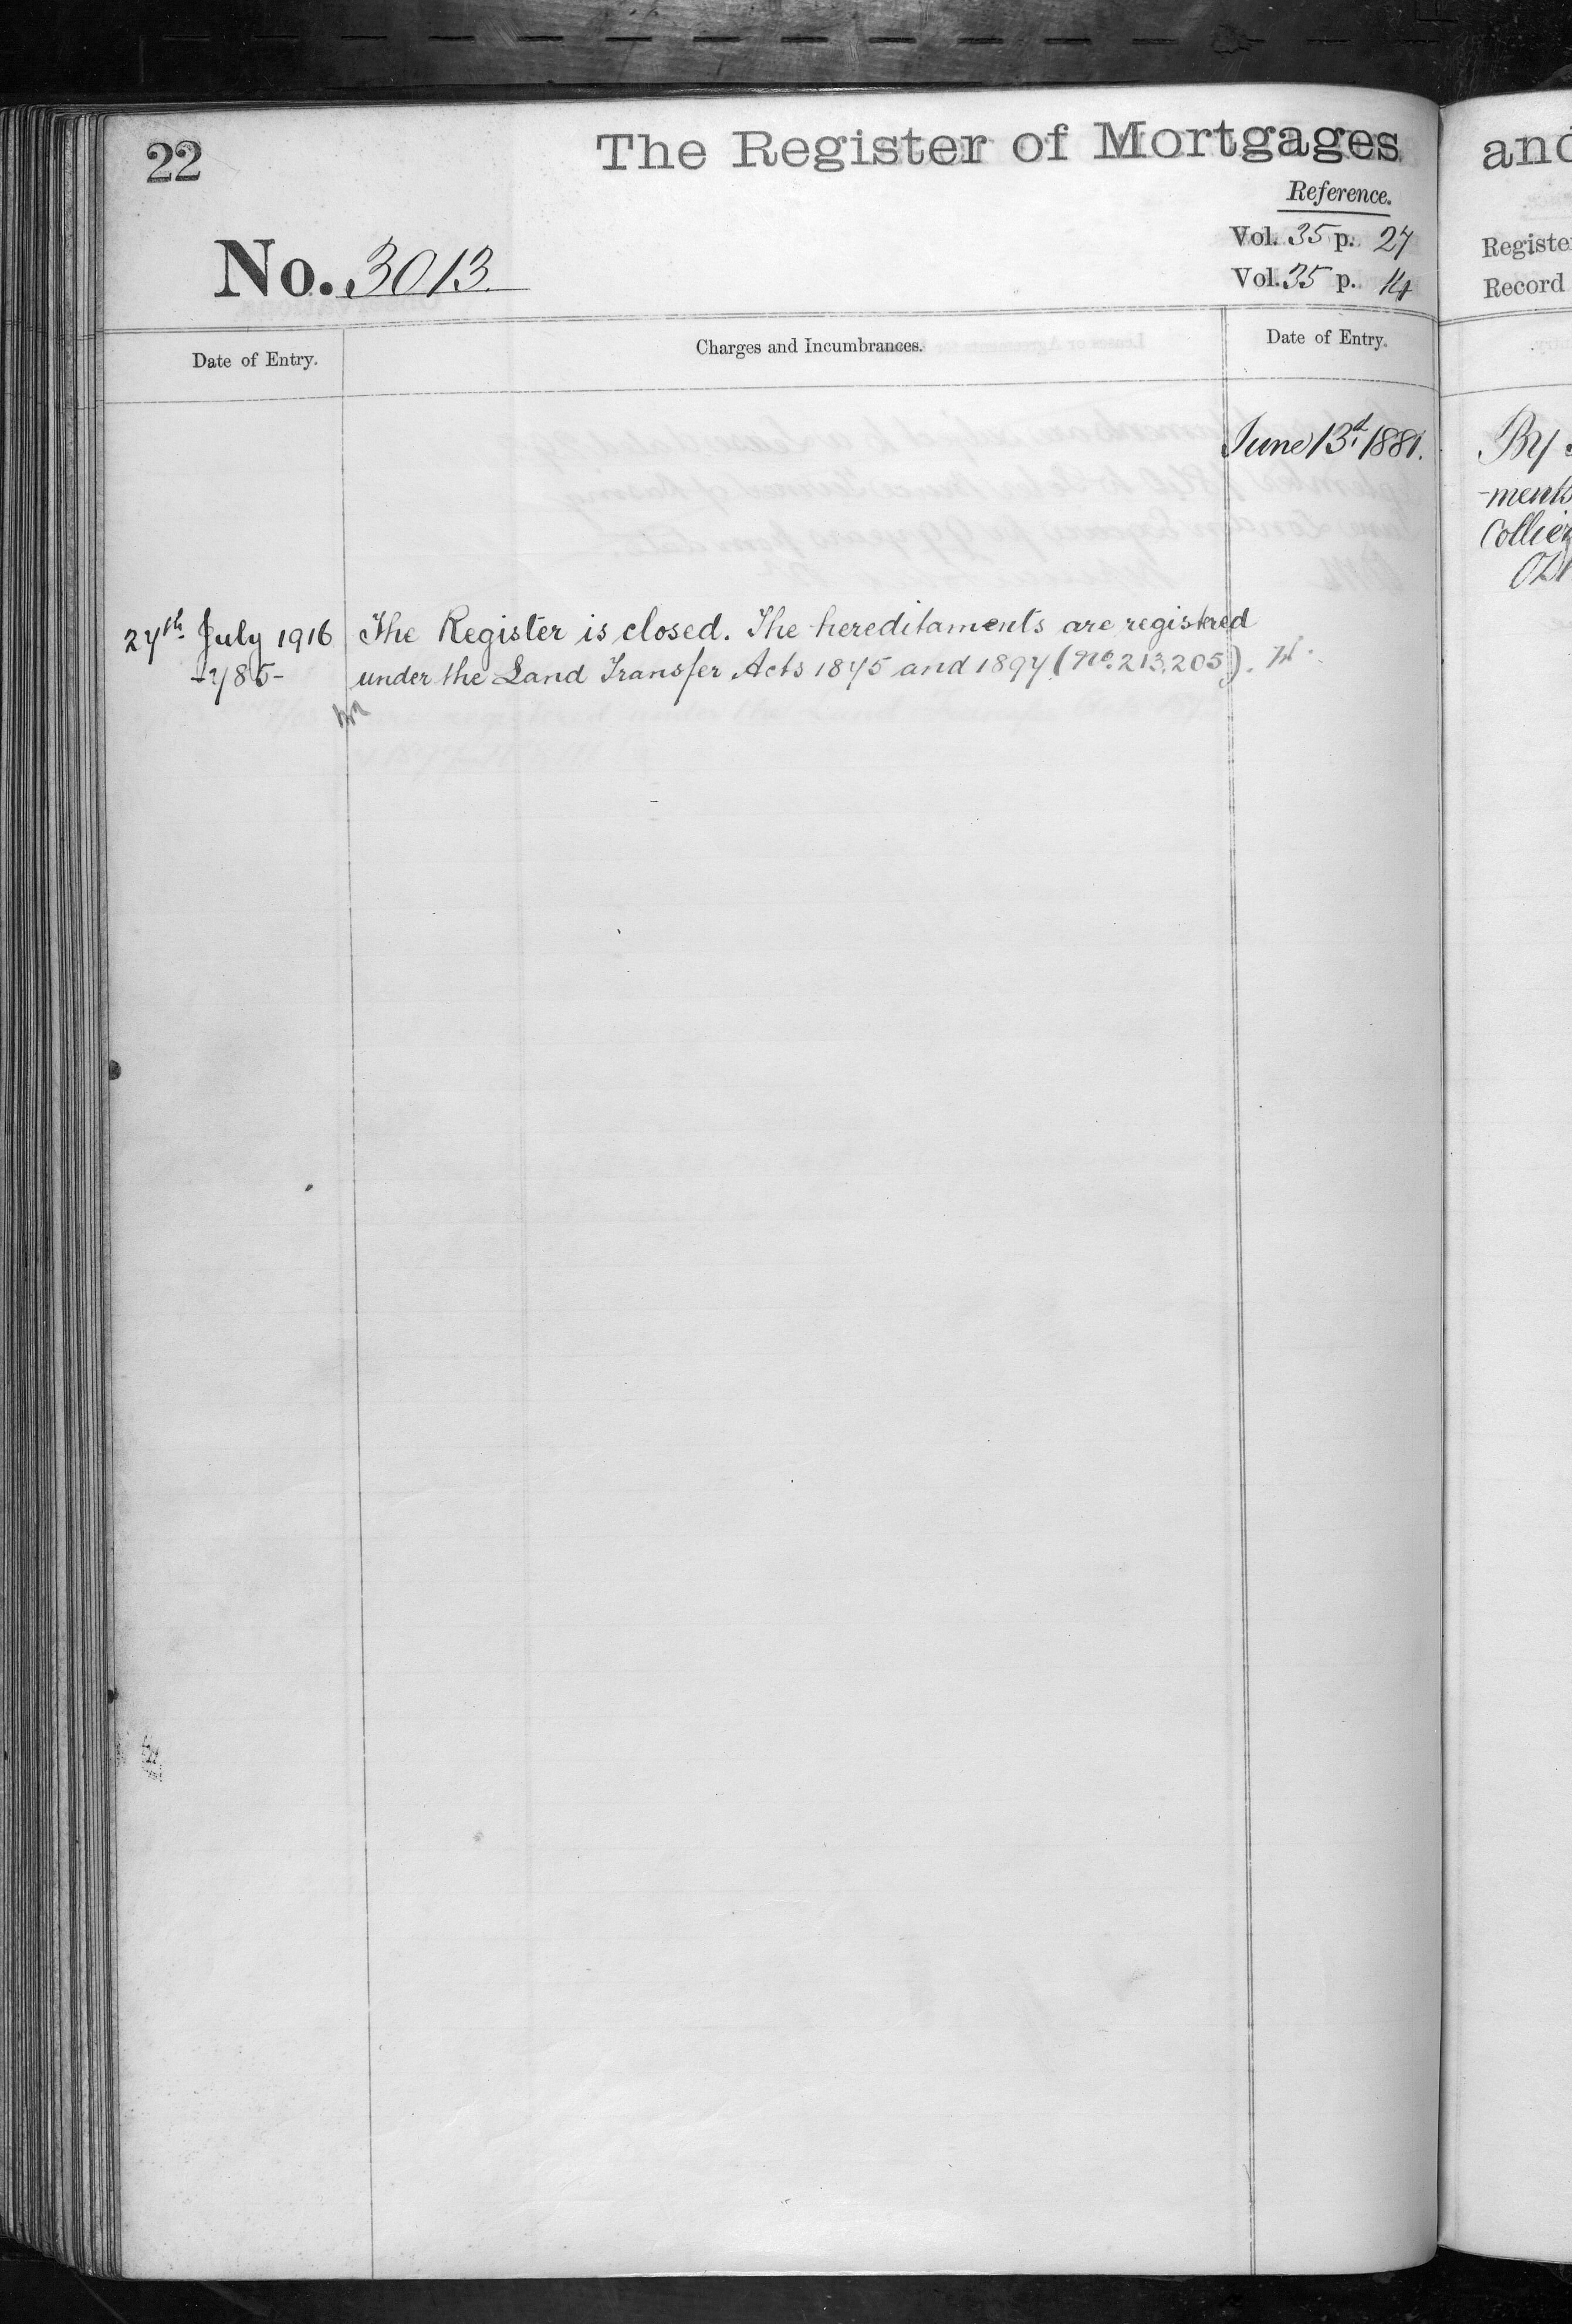 22
The Register of Mortgages
Reference.
Vol. 35 p. 27
Vol. 35 p. 14
No. 3013.
Date of Entry.
Charges and Incumbrances.
Date of Entry.
June 13th 1881.
27th July 1916
-785-
The Register is closed. The hereditaments are registered
under the Land Transfer Acts 1875 and 1897 (No. 213,205).
and
Register
Record
By
-ments
Collier